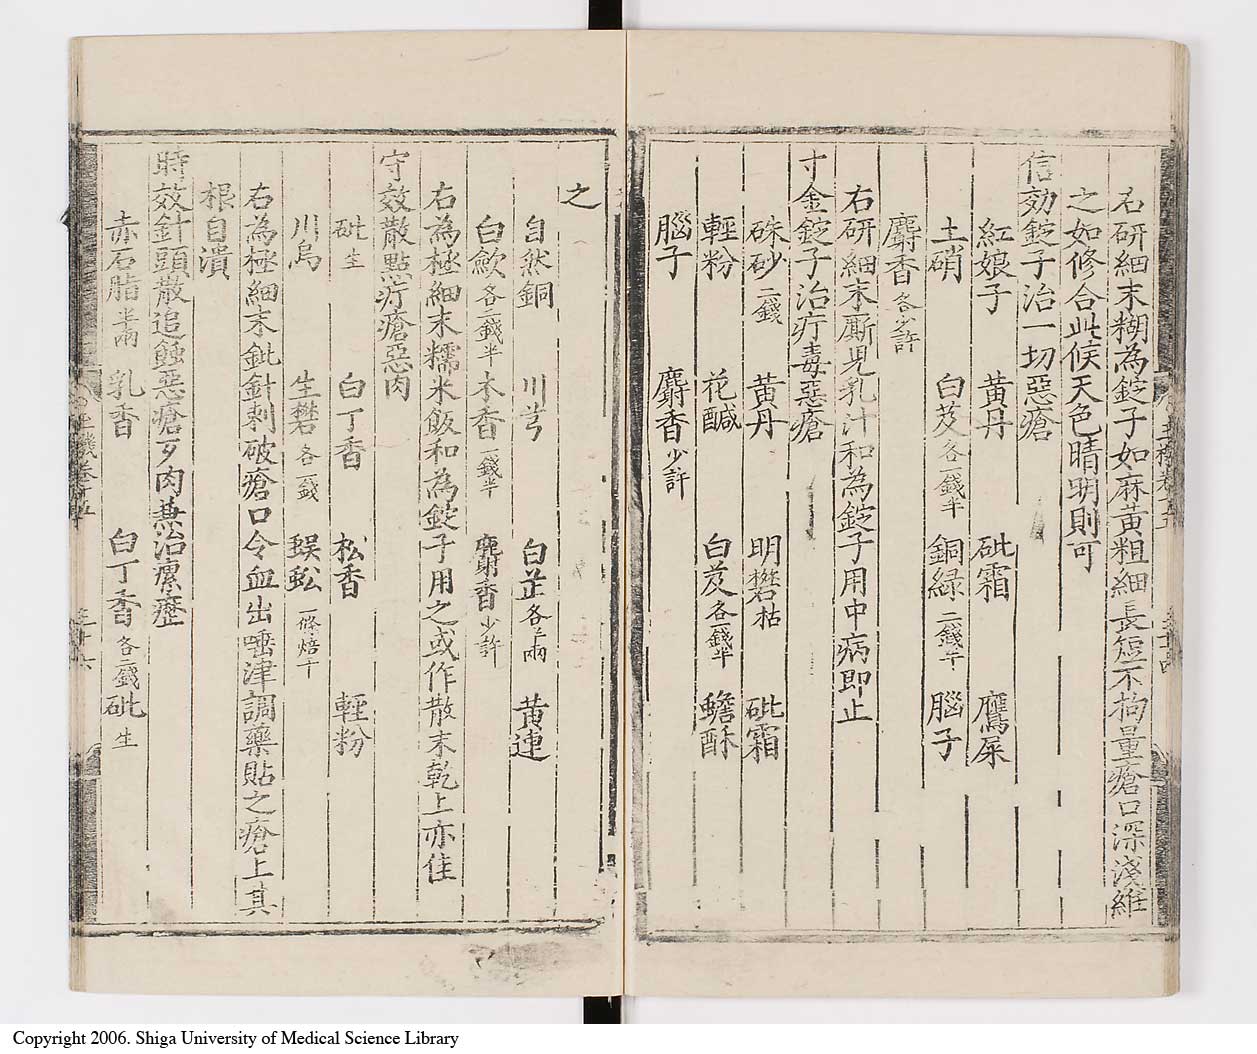 右研細末糊為錠子如麻黃粗細長短不拘量瘡口深淺維
之如修合此候天色晴明則可
信効錠子治一切惡瘡
紅娘子 黃丹 砒霜 鷹屎
土硝 白芨各一錢半 銅緑二錢半 腦子
麝香各少許
右研細末廝児乳汁和為錠子用中病即止
寸金錠子治疔毒惡瘡
硃砂二錢 黃丹 明礬枯 砒霜
輕粉 花鹹 白芨各一錢半 蟾酥
腦子 麝香少許
之
自然銅 川芎 白芷各二兩 黃連
白歛各二錢半 木香一錢半 麝香少許
右為極細末糯米飯和為錠子用之或作散末乾上亦佳
守效散點疔瘡惡肉
砒生 白丁香 松香 輕粉
川烏 生礬各一錢 蜈蚣一條焙干
右為極細末鈚針刺破瘡口令血出唾津調藥貼之瘡上其
根自潰
時效針頭散追蝕惡瘡歹肉兼治瘰癧
赤石脂半兩 乳香 白丁香各二錢 砒生
Copyright 2006. Shiga University of Medical Science Library